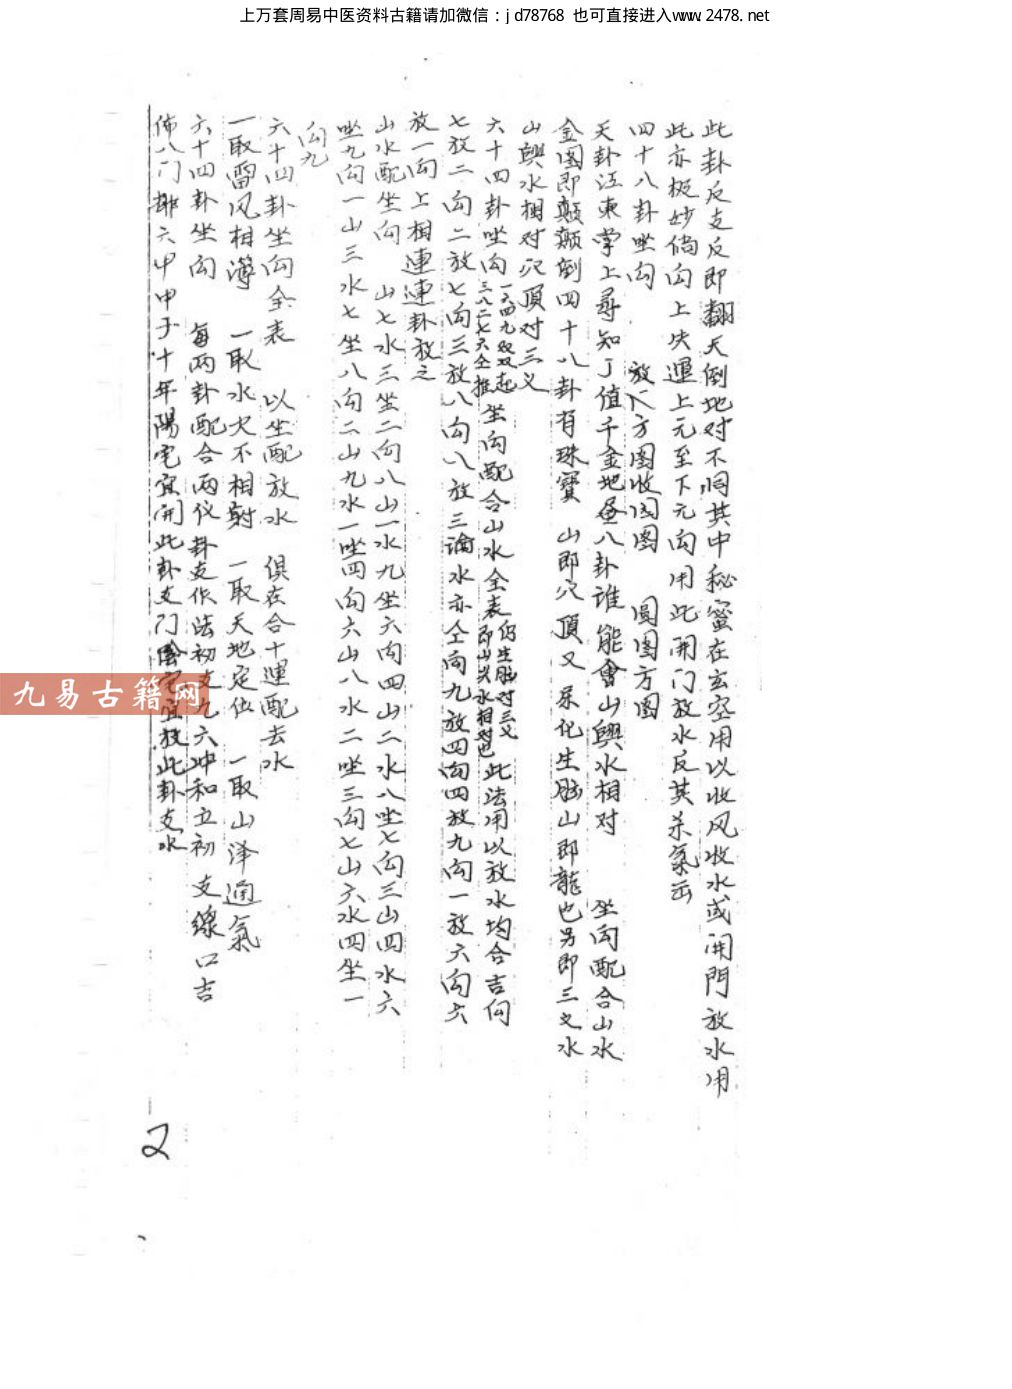 上万套周易中医资料古籍请加微信：jd78768 也可直接进入www.2478.net
此卦反支反即翻天倒地对不同其中秘蜜在玄空用以收风收水或開門放水用
此亦极妙倘向上失運上元至下元向用此開门放水反其杀氣云
四十八卦坐向 放入方图收図图 圓图方图
天卦江東掌上尋知了值千金地画八卦谁能會山與水相对 坐向配合山水
金图即颠颠倒四十八卦有珠寶 山即穴頂又 化生脑山即龍也另即三义水
山與水相对穴頂对三义
六十四卦坐向一六四九双双起三八二七六仝推坐向配合山水全表仍生脑对三义即山与水相对也此法用以放水均合吉向
七放二向二放七向三放八向八放三論水亦仝向九放四向四放九向一放六向六
放一向上相連連卦放之
山水配坐向 山七水三坐二向八山一水九坐六向四山二水八坐七向三山四水六
坐九向一山三水七坐八向二山九水一坐四向六山八水二坐三向七山六水四坐一
向九
六十四卦坐向全表 以坐配放水 俱在合十運配去水
一取雷风相薄 一取水火不相射 一取天地定位 一取山泽通氣
六十四卦坐向 每两卦配合两仪卦支作法初支九六冲和立初支線口吉
佈八门排六甲甲子十年陽宅宜開此卦支门陰宅宜放此卦支水
九易古籍网
2